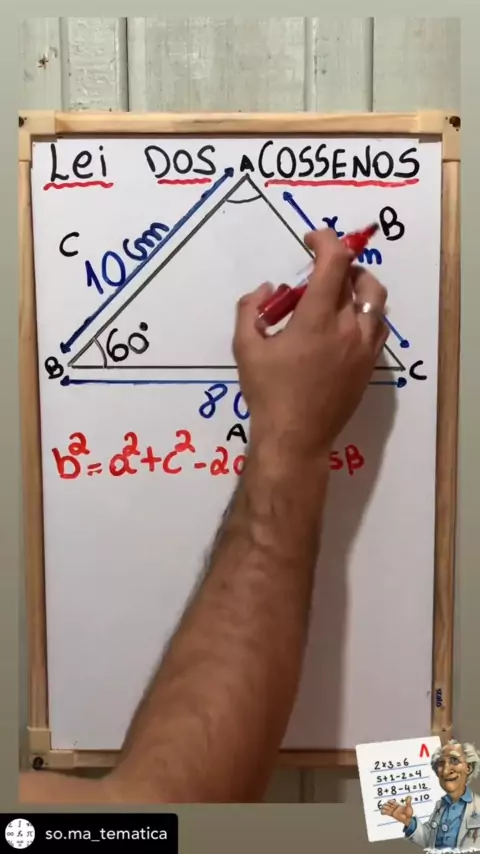 LEI DOS COSSENOS
A
C
10cm
x
m
B
60°
B
C
8
A
b²=a²+c²-2
sβ
2x3=6
5+1-2=4
8+8-4=12
=10
so.ma_tematica